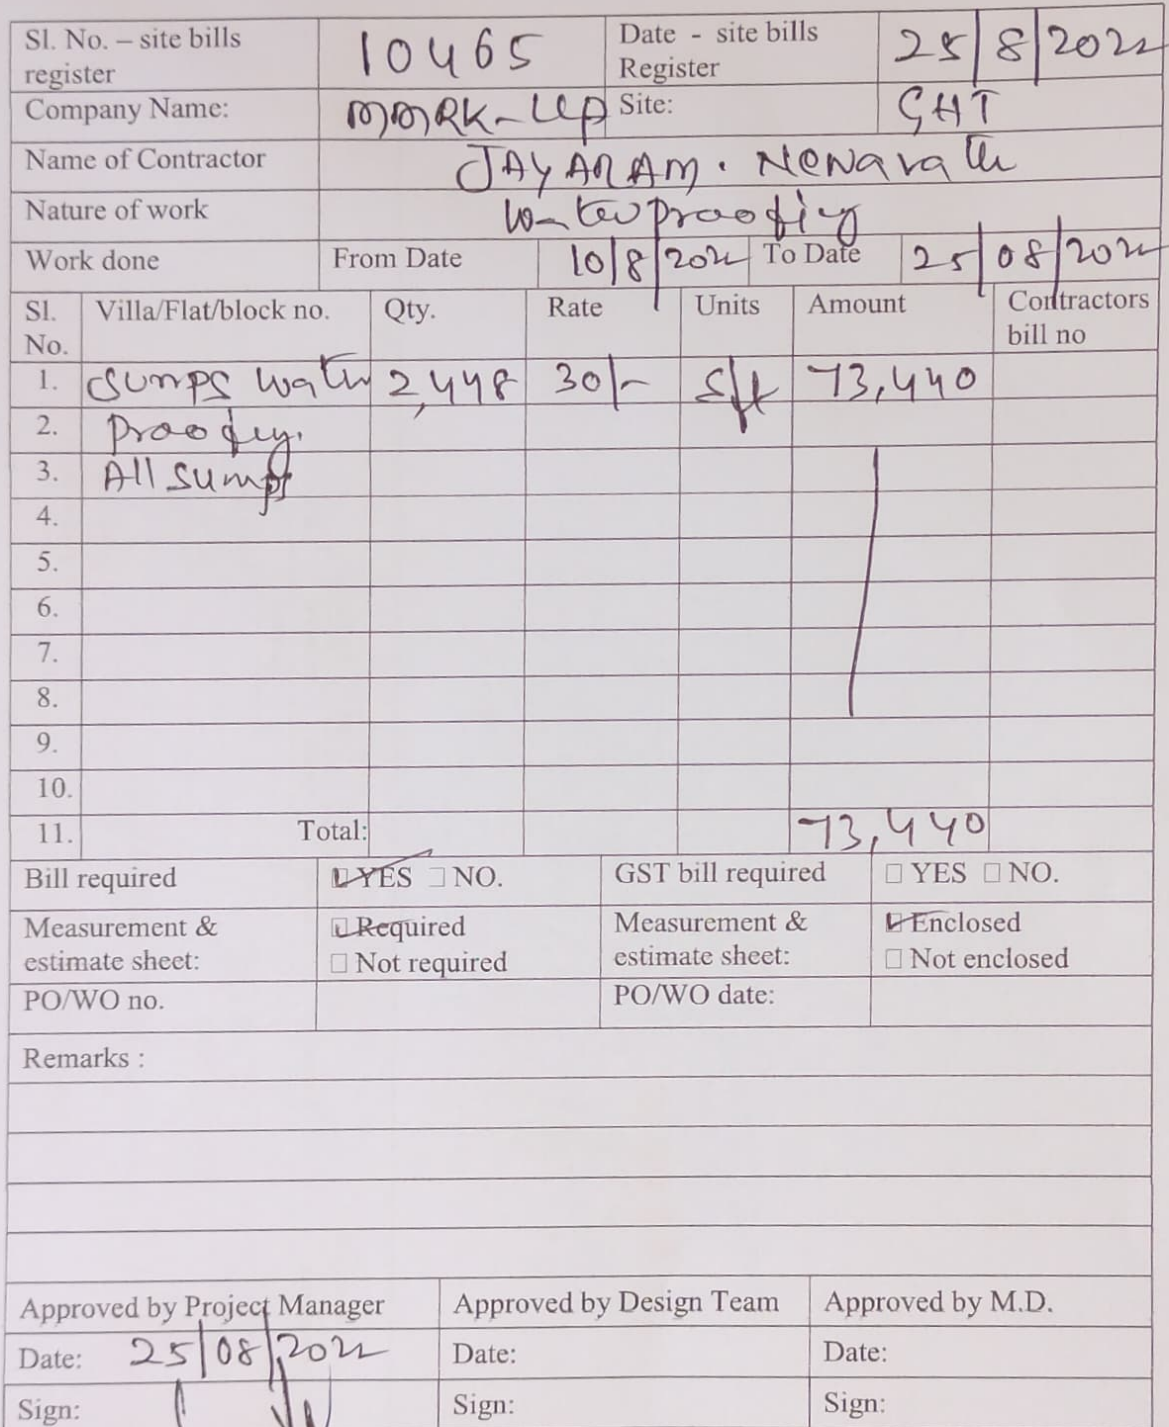 Sl. No. – site bills register 10465 Date - site bills Register 25/8/2022
Company Name: MMRK-LLP Site: GHT
Name of Contractor JAYARAM. Nenavath
Nature of work Waterproofing
Work done From Date 10/8/2022 To Date 25/08/2022
Sl. No. Villa/Flat/block no. Qty. Rate Units Amount Contractors bill no
1. Sumps wath 2,448 30/- Sft 73,440
2. Proofing.
3. All Sumps
4.
5.
6.
7.
8.
9.
10.
11. Total: 73,440
Bill required ☑ YES □ NO. GST bill required □ YES □ NO.
Measurement & estimate sheet: ☑ Required □ Not required Measurement & estimate sheet: ☑ Enclosed □ Not enclosed
PO/WO no. PO/WO date:
Remarks :
Approved by Project Manager Approved by Design Team Approved by M.D.
Date: 25/08/2022 Date: Date:
Sign: Sign: Sign: